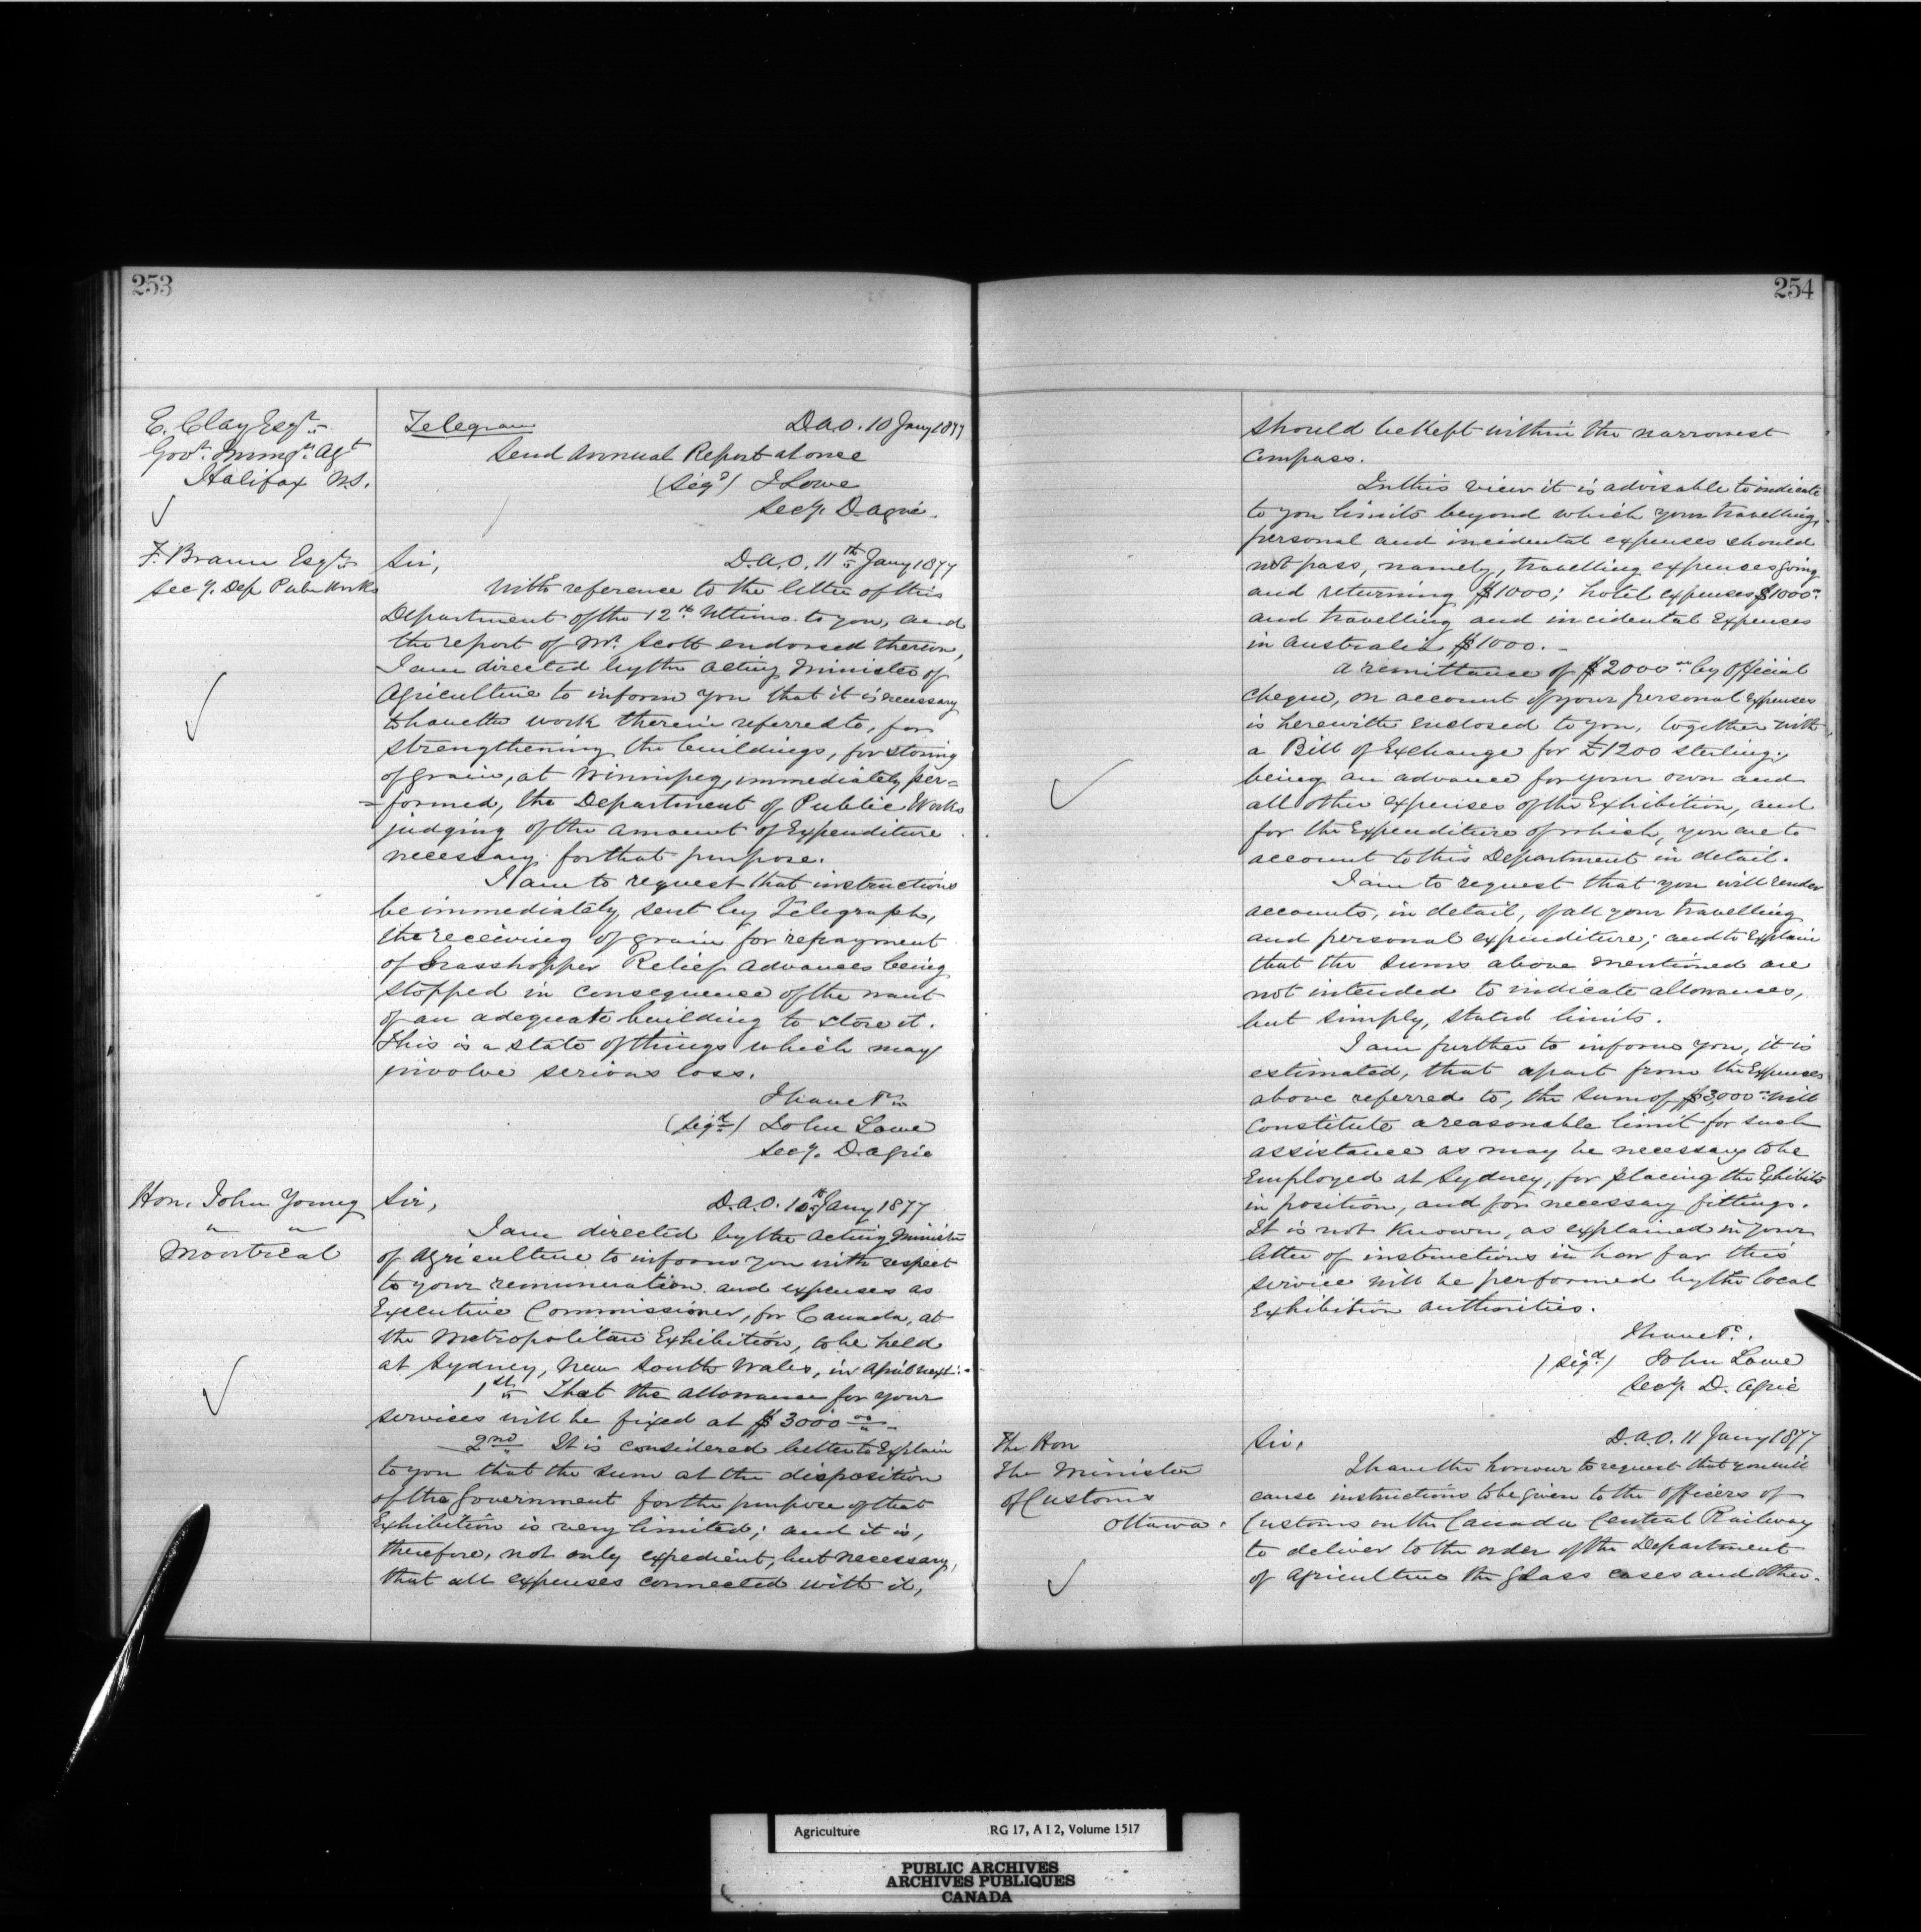 253
E. Clay Esqr.
Govt. Immgn. Agt
Halifax N.S.
Telegram D.A.O. 10 Jany 1877
Send Annual Report at once
(Sigd) J Lowe
Secy. D. Agric.
F. Braun Esqr.
Secy. Dep Pub Works
Sir, D.A.O. 11th Jany 1877
With reference to the letter of this
Department of the 12th Ultimo to you, and
the report of Mr. Scott endorsed thereon,
I am directed by the Acting Minister of
Agriculture to inform you that it is necessary
to have the work therein referred to, for
strengthening the buildings, for storing
of grain, at Winnipeg, immediately per=
=formed, the Department of Public Works
judging of the amount of Expenditure
necessary for that purpose.
I am to request that instructions
be immediately sent by Telegraph,
the receiving of grain for repayment
of Grasshopper Relief advances being
stopped in consequence of the want
of an adequate building to store it.
This is a state of things which may
involve serious loss.
I have &c
(Sigd) John Lowe
Secy. D. Agric
Hon. John Young
" "
Montreal
Sir, D.A.O. 10th Jany 1877
I am directed by the Acting Minister
of Agriculture to inform you with respect
to your remuneration and expenses as
Executive Commissioner, for Canada, at
the Metropolitan Exhibition, to be held
at Sydney, New South Wales, in April next:-
1st That the allowance for your
services will be fixed at $3000 00
2nd It is considered better to Explain
to you that the sum at the disposition
of the Government for the purpose of that
Exhibition is very limited; and it is,
therefore, not only expedient, but necessary,
that all expenses connected with it,
254
should be kept within the narrowest
compass.
In this view it is advisable to indicate
to you limits beyond which your travelling,
personal and incidental expenses should
not pass, namely, travelling expenses going
and returning $1000; hotel expenses $1000
and travelling and incidental Expenses
in Australia $1000.-
A remittance of $2000 00 by Official
Cheque, on account of your personal expenses
is herewith enclosed to you, together with
a Bill of Exchange for £1200 sterling,
being an advance for your own and
all other expenses of the Exhibition, and
for the Expenditure of which, you are to
account to this Department in detail.
I am to request that you will render
accounts, in detail, of all your travelling
and personal expenditure; and to Explain
that the sums above mentioned are
not intended to indicate allowances,
but simply, stated limits.
I am further to inform you, it is
estimated, that apart from the Expenses
above referred to, the sum of $3,000 will
constitute a reasonable limit for such
assistance as may be necessary to be
Employed at Sydney, for placing the Exhibits
in position, and for necessary fittings.
It is not known, as explained in your
letter of instructions in how far this
service will be performed by the local
Exhibition authorities.
I have &c.
(Sigd) John Lowe
Secy. D. Agric
The Hon
The Minister
of Customs
Ottawa.
Sir, D.A.O. 11 Jany 1877
I have the honour to request that you will
cause instructions to be given to the officers of
Customs on the Canada Central Railway
to deliver to the order of the Department
of Agriculture the glass cases and other
Agriculture RG 17, A I 2, Volume 1517
PUBLIC ARCHIVES
ARCHIVES PUBLIQUES
CANADA